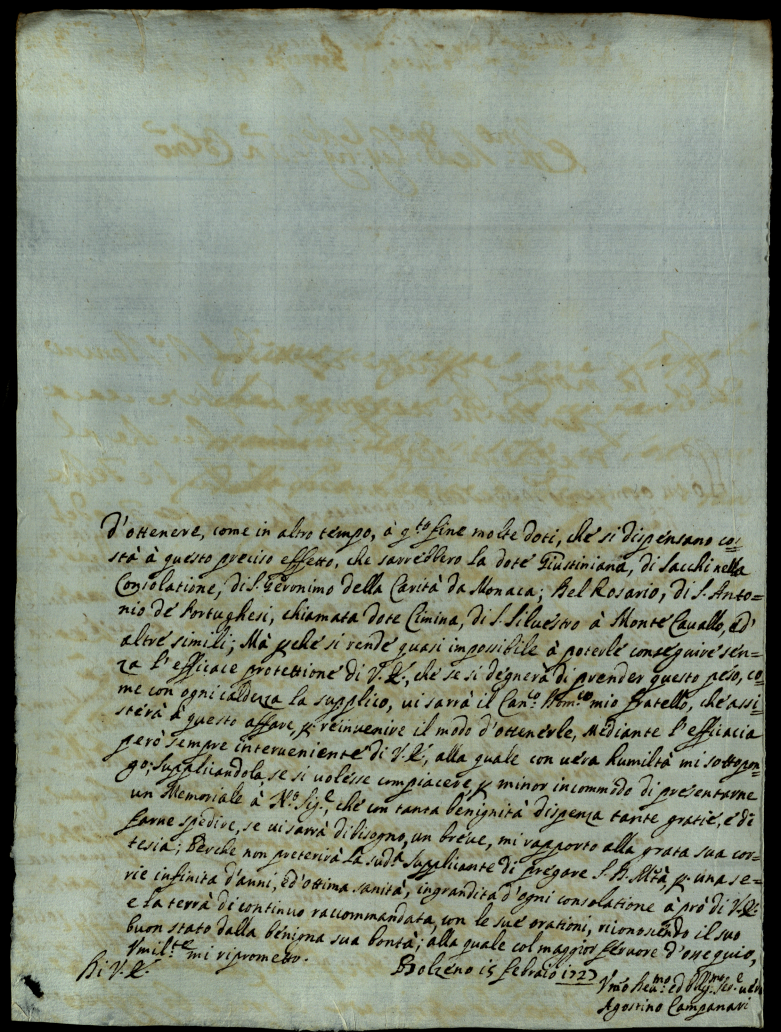 d'ottenere, come in altro tempo, à q.to fine molte doti, che si dispensano co=
stà à questo preciso effetto, che sarrebbero la dote Giustiniana, di Sacchi nella
Consolatione, di S. Geronimo della Carità da Monaca; Del Rosario, di S. Anto=
nio de Portughesi, chiamata dote Cimina, di S. Silvestro à Monte Cavallo, ed'
altre simili; Mà p che si rende quasi impossibile à poterle conseguire sen=
za l'efficace protettione di V. E., che se si degnerà di prender questo peso, co=
me con ogni caldezza la supplico, vi sarrà il Can.co mio fratello, che assi=
sterà à questo affare, p reinvenire il modo d'ottenerle, mediante l'efficacia
però sempre interveniente di V. E., alla quale con vera humiltà mi sottopon=
go; Supplicandola se si volesse compiacere, p minor incommodo di presentarne
un Memoriale à N.ro Sig.e, che con tanta benignità dispenza tante gratie, e di
farne spedire, se vi sarrà di bisogno, un breve, mi rapporto alla grata sua cor=
tesia; Perche non preterirà la sud.a Supplicante di pregare S. D. M.tà, p una se=
rie infinita d'anni, ed'ottima sanità, ingrandita d'ogni consolatione à prò di V. E.
e la terrà di continuo raccommandata, con le sue orationi, riconoscendo il suo
buon stato dalla benigna sua bontà; alla quale col maggior fervore d'ossequio,
Vmil.te mi riprometto.
Di V. E. Bolzeno 15 febraio 1727
Vmo Devmo. ed Obligmo. Ser.e vero
Agostino Campanari